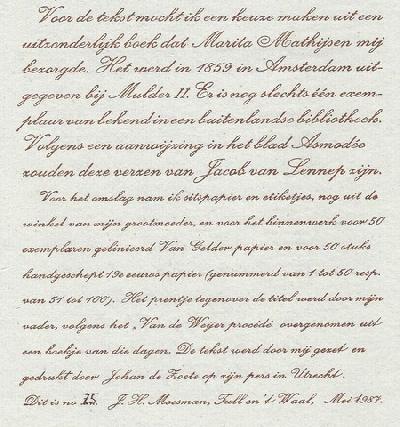 Voor de tekst mocht ik een keuze maken uit een
uitzonderlijk boek dat Marita Mathijsen mij
bezorgde. Het werd in 1859 in Amsterdam uit-
gegeven bij Mulder II. Er is nog slechts één exem-
plaar van bekend in een buitenlandse bibliotheek.
Volgens een aanwijzing in het blad Asmodéo
zouden deze verzen van Jacob van Lennep zijn.
Voor het omslag nam ik sitspapier en etiketjes, nog uit de
winkel van mijn grootmoeder, en voor het binnenwerk voor 50
exemplaren gelinieerd Van Gelder papier en voor 50 stuks
handgeschept 19e eeuws papier (genummerd van 1 tot 50 resp.
van 51 tot 100). Het prentje tegenover de titel werd door mijn
vader, volgens het „Van de Weyer procédé overgenomen uit
een boekje van die dagen. De tekst werd door mij gezet en
gedrukt door Johan de Zoete op zijn pers in Utrecht.
Dit is no 75 J. H. Moesman, Tull en 't Waal, Mei 1987.